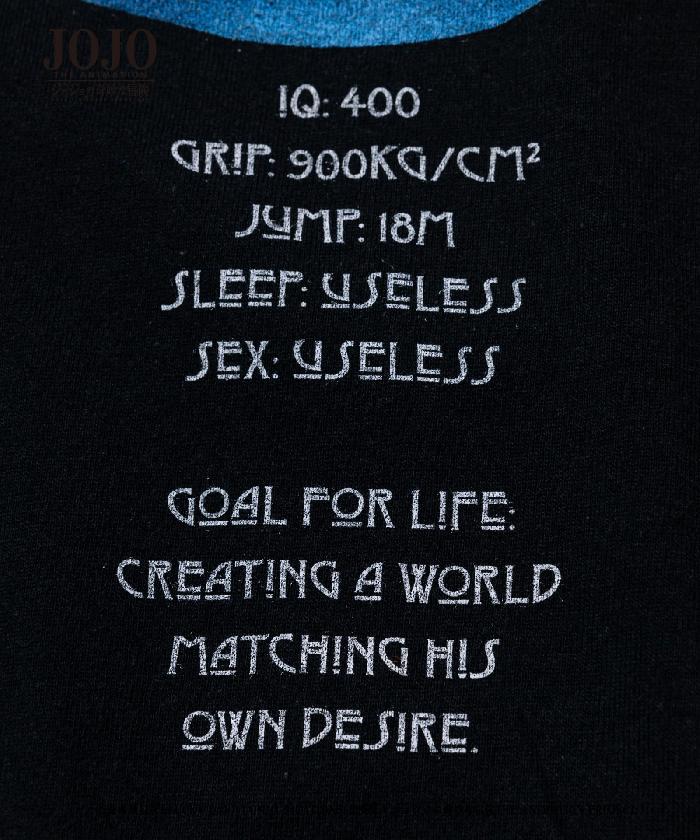 JOJO
THE ANIMATION
IQ: 400
GRIP: 900KG/CM²
JUMP: 18M
SLEEP: USELESS
SEX: USELESS
GOAL FOR LIFE:
CREATING A WORLD
MATCHING HIS
OWN DESIRE.